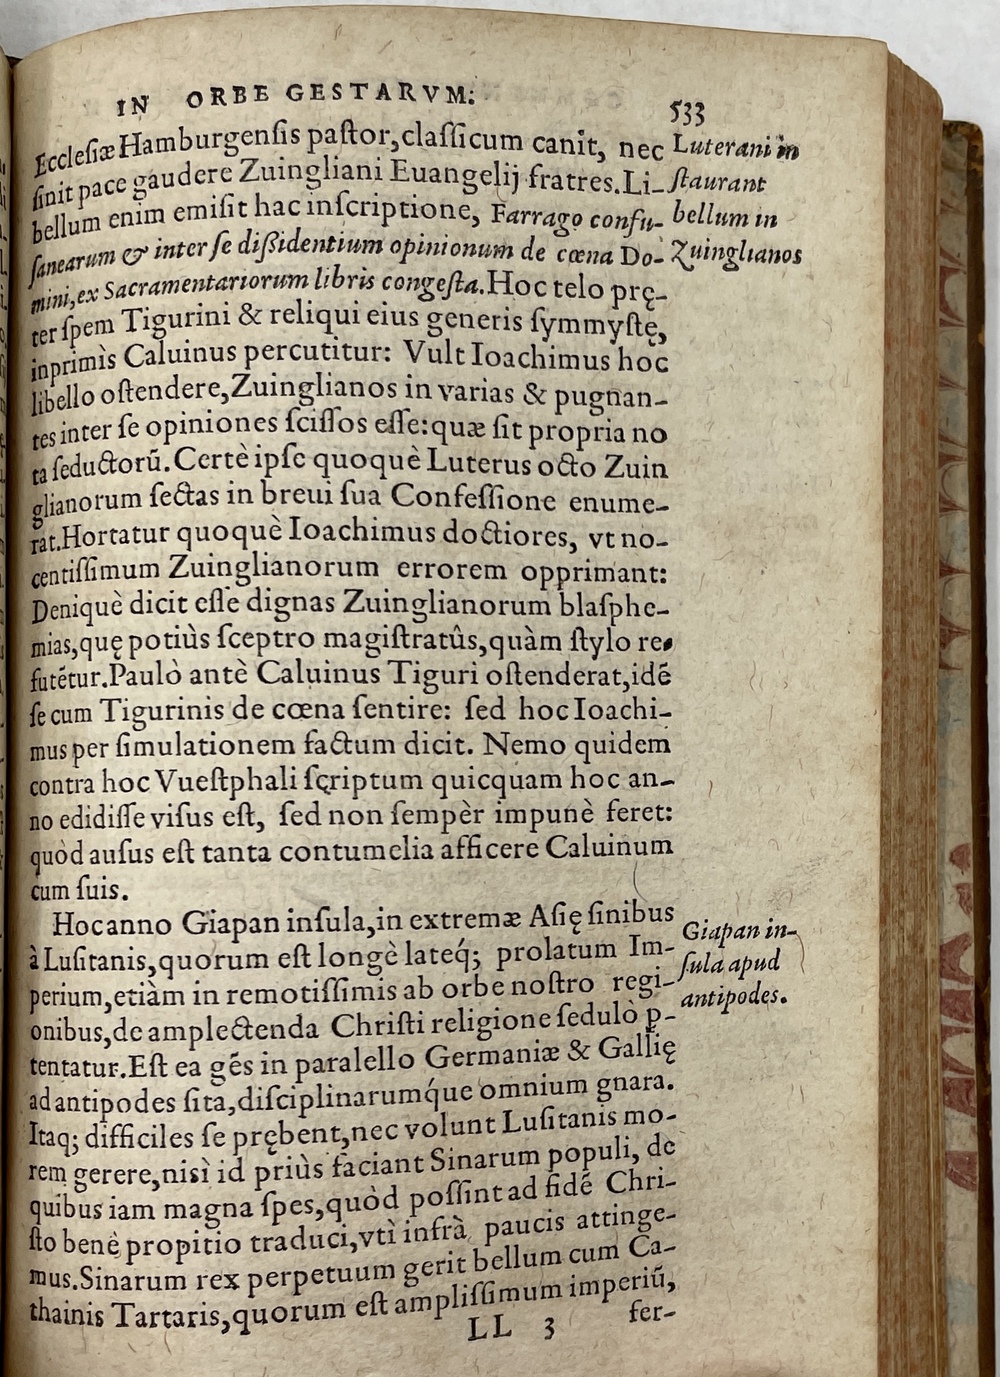 IN ORBE GESTARVM:
533
Ecclesiæ Hamburgensis pastor, classicum canit, nec
sinit pace gaudere Zuingliani Euangelij fratres. Li-
bellum enim emisit hac inscriptione, Farrago confu-
sanearum & inter se dißidentium opinionum de cœna Do-
mini, ex Sacramentariorum libris congesta. Hoc telo prę-
ter spem Tigurini & reliqui eius generis symmystę,
inprimìs Caluinus percutitur: Vult Ioachimus hoc
libello ostendere, Zuinglianos in varias & pugnan-
tes inter se opiniones scissos esse: quæ sit propria no
ta seductorū. Certè ipse quoquè Luterus octo Zuin
glianorum sectas in breui sua Confessione enume-
rat. Hortatur quoquè Ioachimus doctiores, vt no-
centissimum Zuinglianorum errorem opprimant:
Deniquè dicit esse dignas Zuinglianorum blasphe-
mias, quę potiùs sceptro magistratûs, quàm stylo re-
futētur. Paulò antè Caluinus Tiguri ostenderat, idē
se cum Tigurinis de cœna sentire: sed hoc Ioachi-
mus per simulationem factum dicit. Nemo quidem
contra hoc Vuestphali scriptum quicquam hoc an-
no edidisse visus est, sed non sempèr impunè feret:
quòd ausus est tanta contumelia afficere Caluinum
cum suis.
Hoc anno Giapan insula, in extremæ Asię finibus
à Lusitanis, quorum est longè lateq́; prolatum Im-
perium, etiàm in remotissimis ab orbe nostro regi-
onibus, de amplectenda Christi religione sedulò p-
tentatur. Est ea gēs in paralello Germaniæ & Gallię
ad antipodes sita, disciplinarumq́ue omnium gnara.
Itaq; difficiles se prębent, nec volunt Lusitanis mo-
rem gerere, nisì id priùs faciant Sinarum populi, de
quibus iam magna spes, quòd possint ad fidē Chri-
sto benè propitio traduci, vtì infrà paucis attinge-
mus. Sinarum rex perpetuum gerit bellum cum Ca-
thainis Tartaris, quorum est amplissimum imperiū,
LL 3
fer-
Luterani in
staurant
bellum in
Zuinglianos
Giapan in-
sula apud
antipodes.